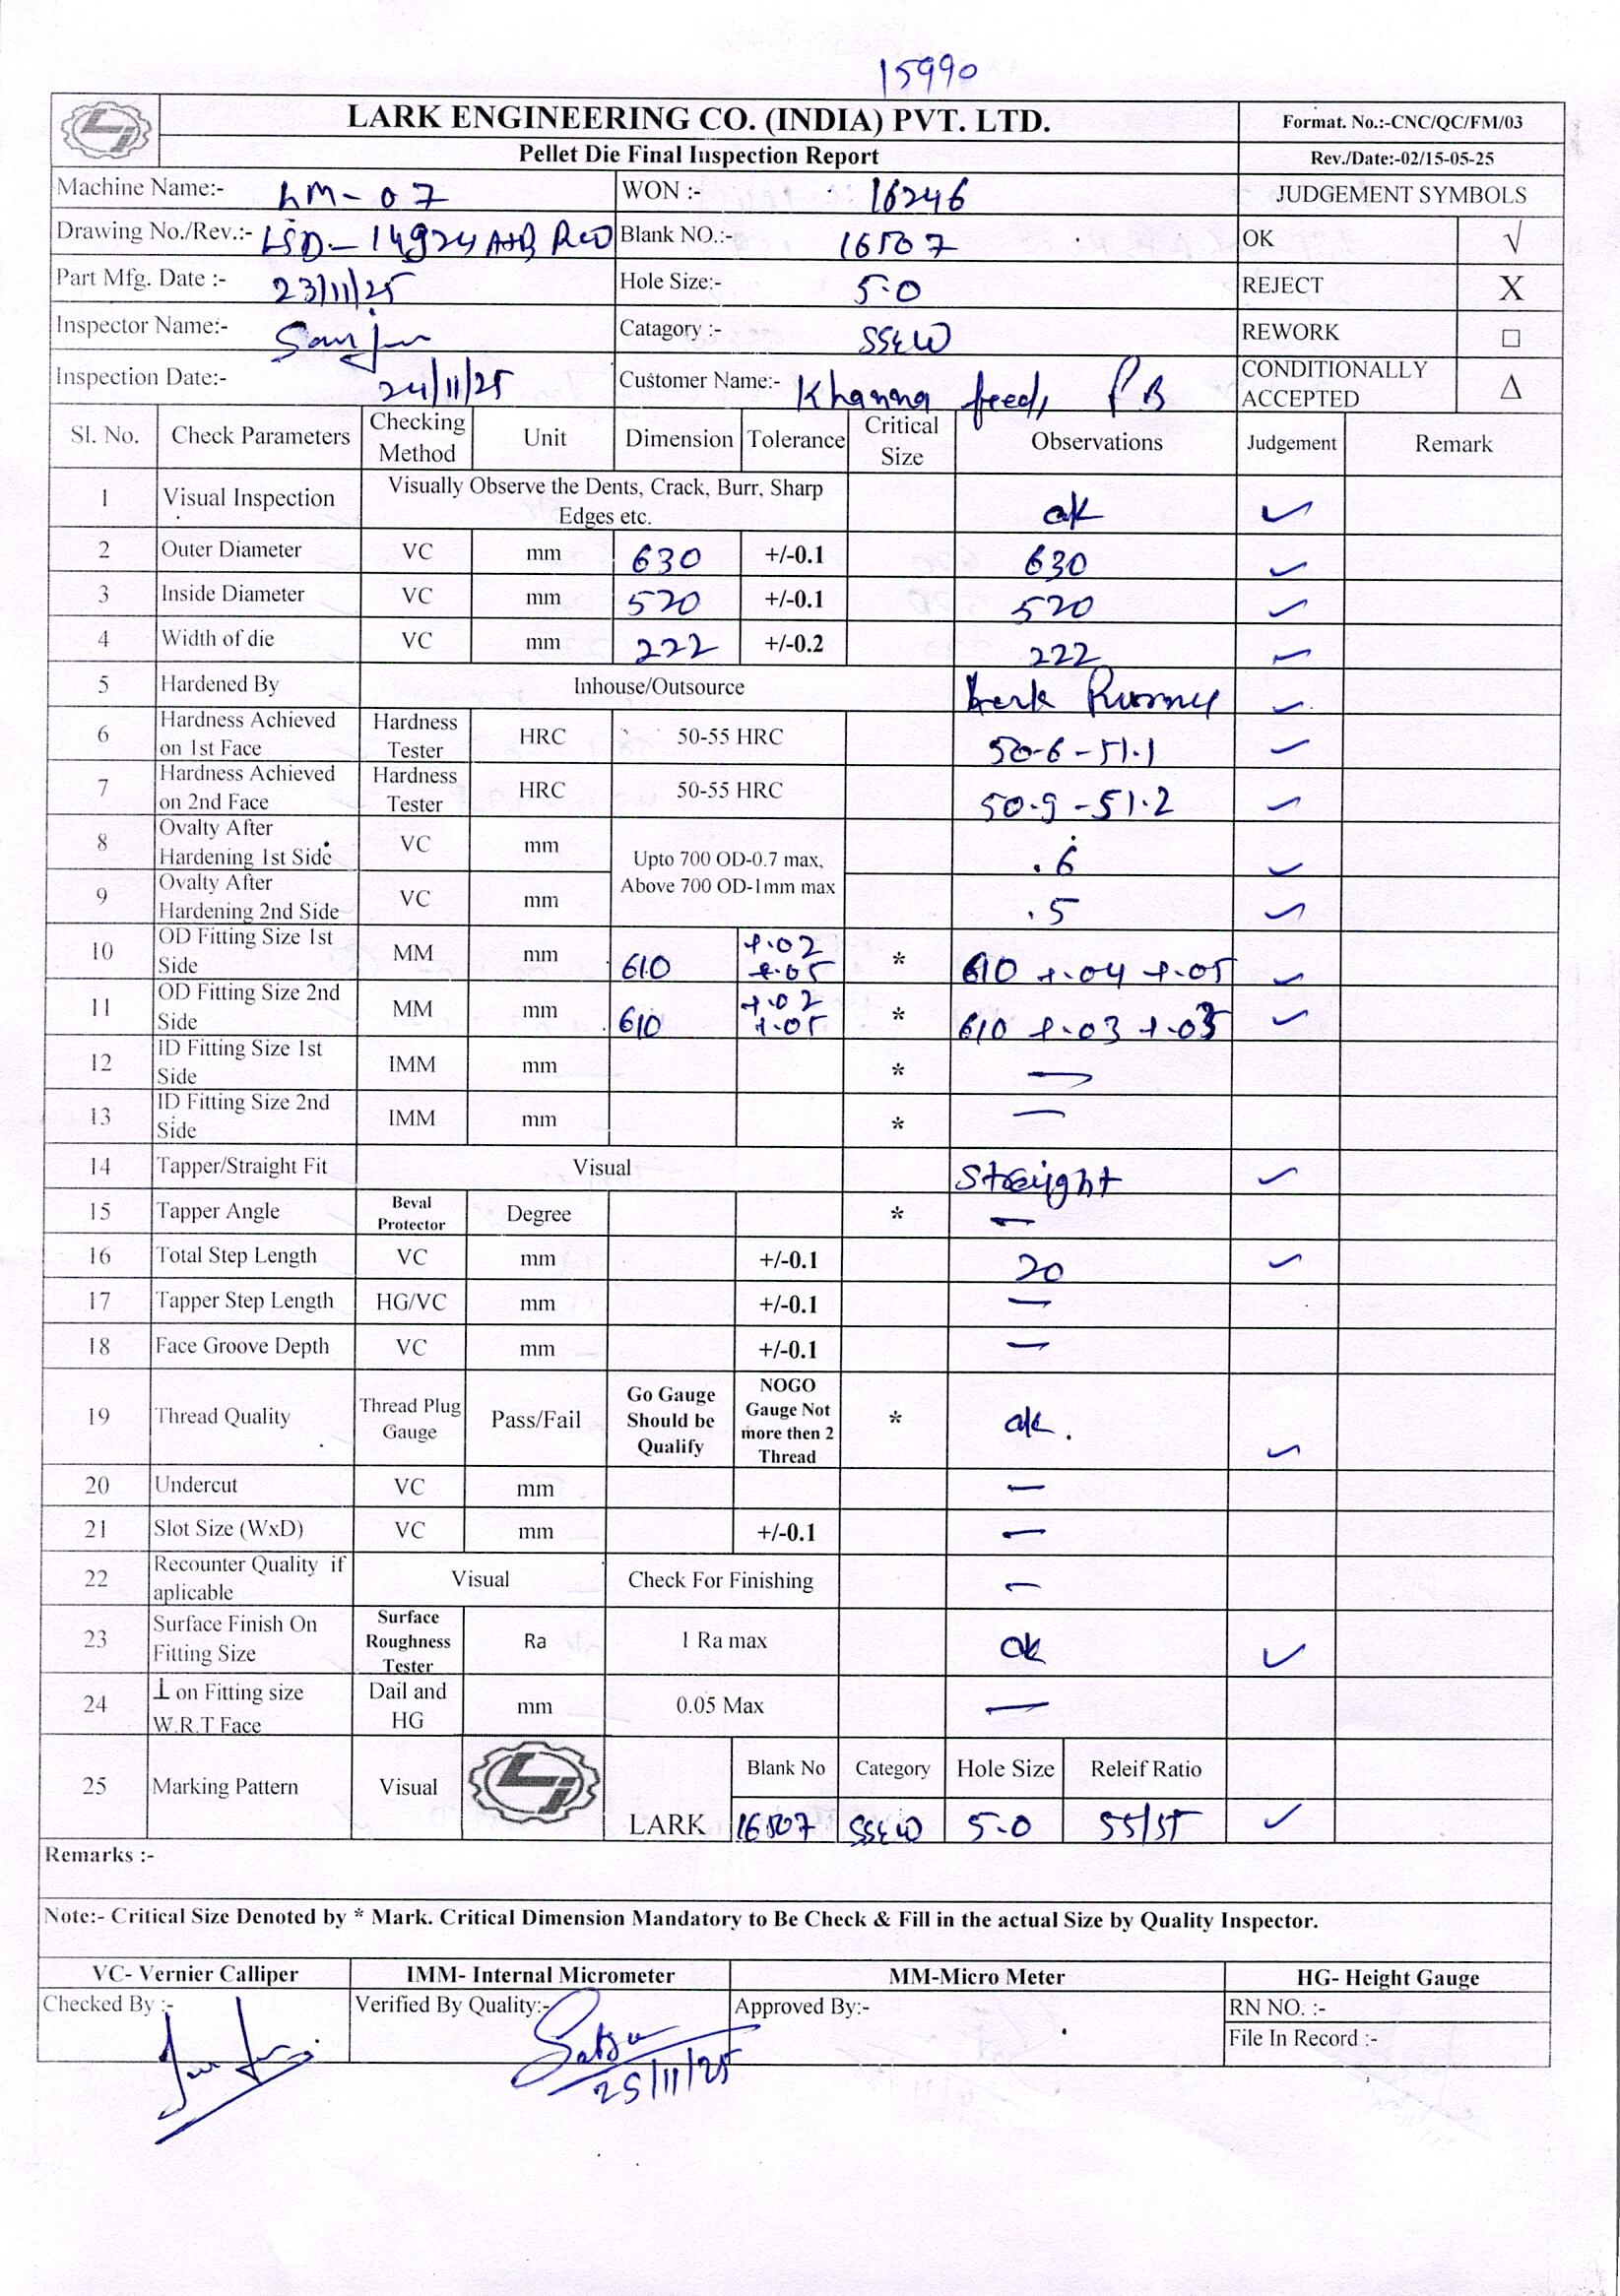 15990
LARK ENGINEERING CO. (INDIA) PVT. LTD.
Format. No.:-CNC/QC/FM/03
Pellet Die Final Inspection Report
Rev./Date:-02/15-05-25
Machine Name:- LM-07 WON :- 16246 JUDGEMENT SYMBOLS
Drawing No./Rev.:- LSD-14924 A+B R00 Blank NO.:- 16507 OK √
Part Mfg. Date :- 23/11/25 Hole Size:- 5.0 REJECT X
Inspector Name:- Catagory :- SS4W REWORK □
Inspection Date:- 24/11/25 Customer Name:- Khanna feeds PB CONDITIONALLY ACCEPTED Δ
Sl. No. Check Parameters Checking Method Unit Dimension Tolerance Critical Size Observations Judgement Remark
1 Visual Inspection Visually Observe the Dents, Crack, Burr, Sharp Edges etc. ok ✓
2 Outer Diameter VC mm 630 +/-0.1 630 ✓
3 Inside Diameter VC mm 520 +/-0.1 520 ✓
4 Width of die VC mm 222 +/-0.2 222 ✓
5 Hardened By Inhouse/Outsource Lark ✓
6 Hardness Achieved on 1st Face Hardness Tester HRC 50-55 HRC 50.6-51.1 ✓
7 Hardness Achieved on 2nd Face Hardness Tester HRC 50-55 HRC 50.9-51.2 ✓
8 Ovalty After Hardening 1st Side VC mm Upto 700 OD-0.7 max, Above 700 OD-1mm max .6 ✓
9 Ovalty After Hardening 2nd Side VC mm .5 ✓
10 OD Fitting Size 1st Side MM mm 610 +.02 +.05 * 610 +.04 +.05 ✓
11 OD Fitting Size 2nd Side MM mm 610 +.02 +.05 * 610 +.03 ✓
12 ID Fitting Size 1st Side IMM mm * —
13 ID Fitting Size 2nd Side IMM mm * —
14 Tapper/Straight Fit Visual Straight ✓
15 Tapper Angle Beval Protector Degree * —
16 Total Step Length VC mm +/-0.1 20 ✓
17 Tapper Step Length HG/VC mm +/-0.1 —
18 Face Groove Depth VC mm +/-0.1 —
19 Thread Quality Thread Plug Gauge Pass/Fail Go Gauge Should be Qualify NOGO Gauge Not more then 2 Thread * ok. ✓
20 Undercut VC mm —
21 Slot Size (WxD) VC mm +/-0.1 —
22 Recounter Quality if aplicable Visual Check For Finishing —
23 Surface Finish On Fitting Size Surface Roughness Tester Ra 1 Ra max ok ✓
24 ⊥ on Fitting size W.R.T Face Dail and HG mm 0.05 Max —
25 Marking Pattern Visual LARK Blank No Category Hole Size Releif Ratio
16507 SS4W 5.0 55/55 ✓
Remarks :-
Note:- Critical Size Denoted by * Mark. Critical Dimension Mandatory to Be Check & Fill in the actual Size by Quality Inspector.
VC- Vernier Calliper IMM- Internal Micrometer MM-Micro Meter HG- Height Gauge
Checked By :- Verified By Quality:- Approved By:- RN NO. :-
File In Record :-
25/11/25